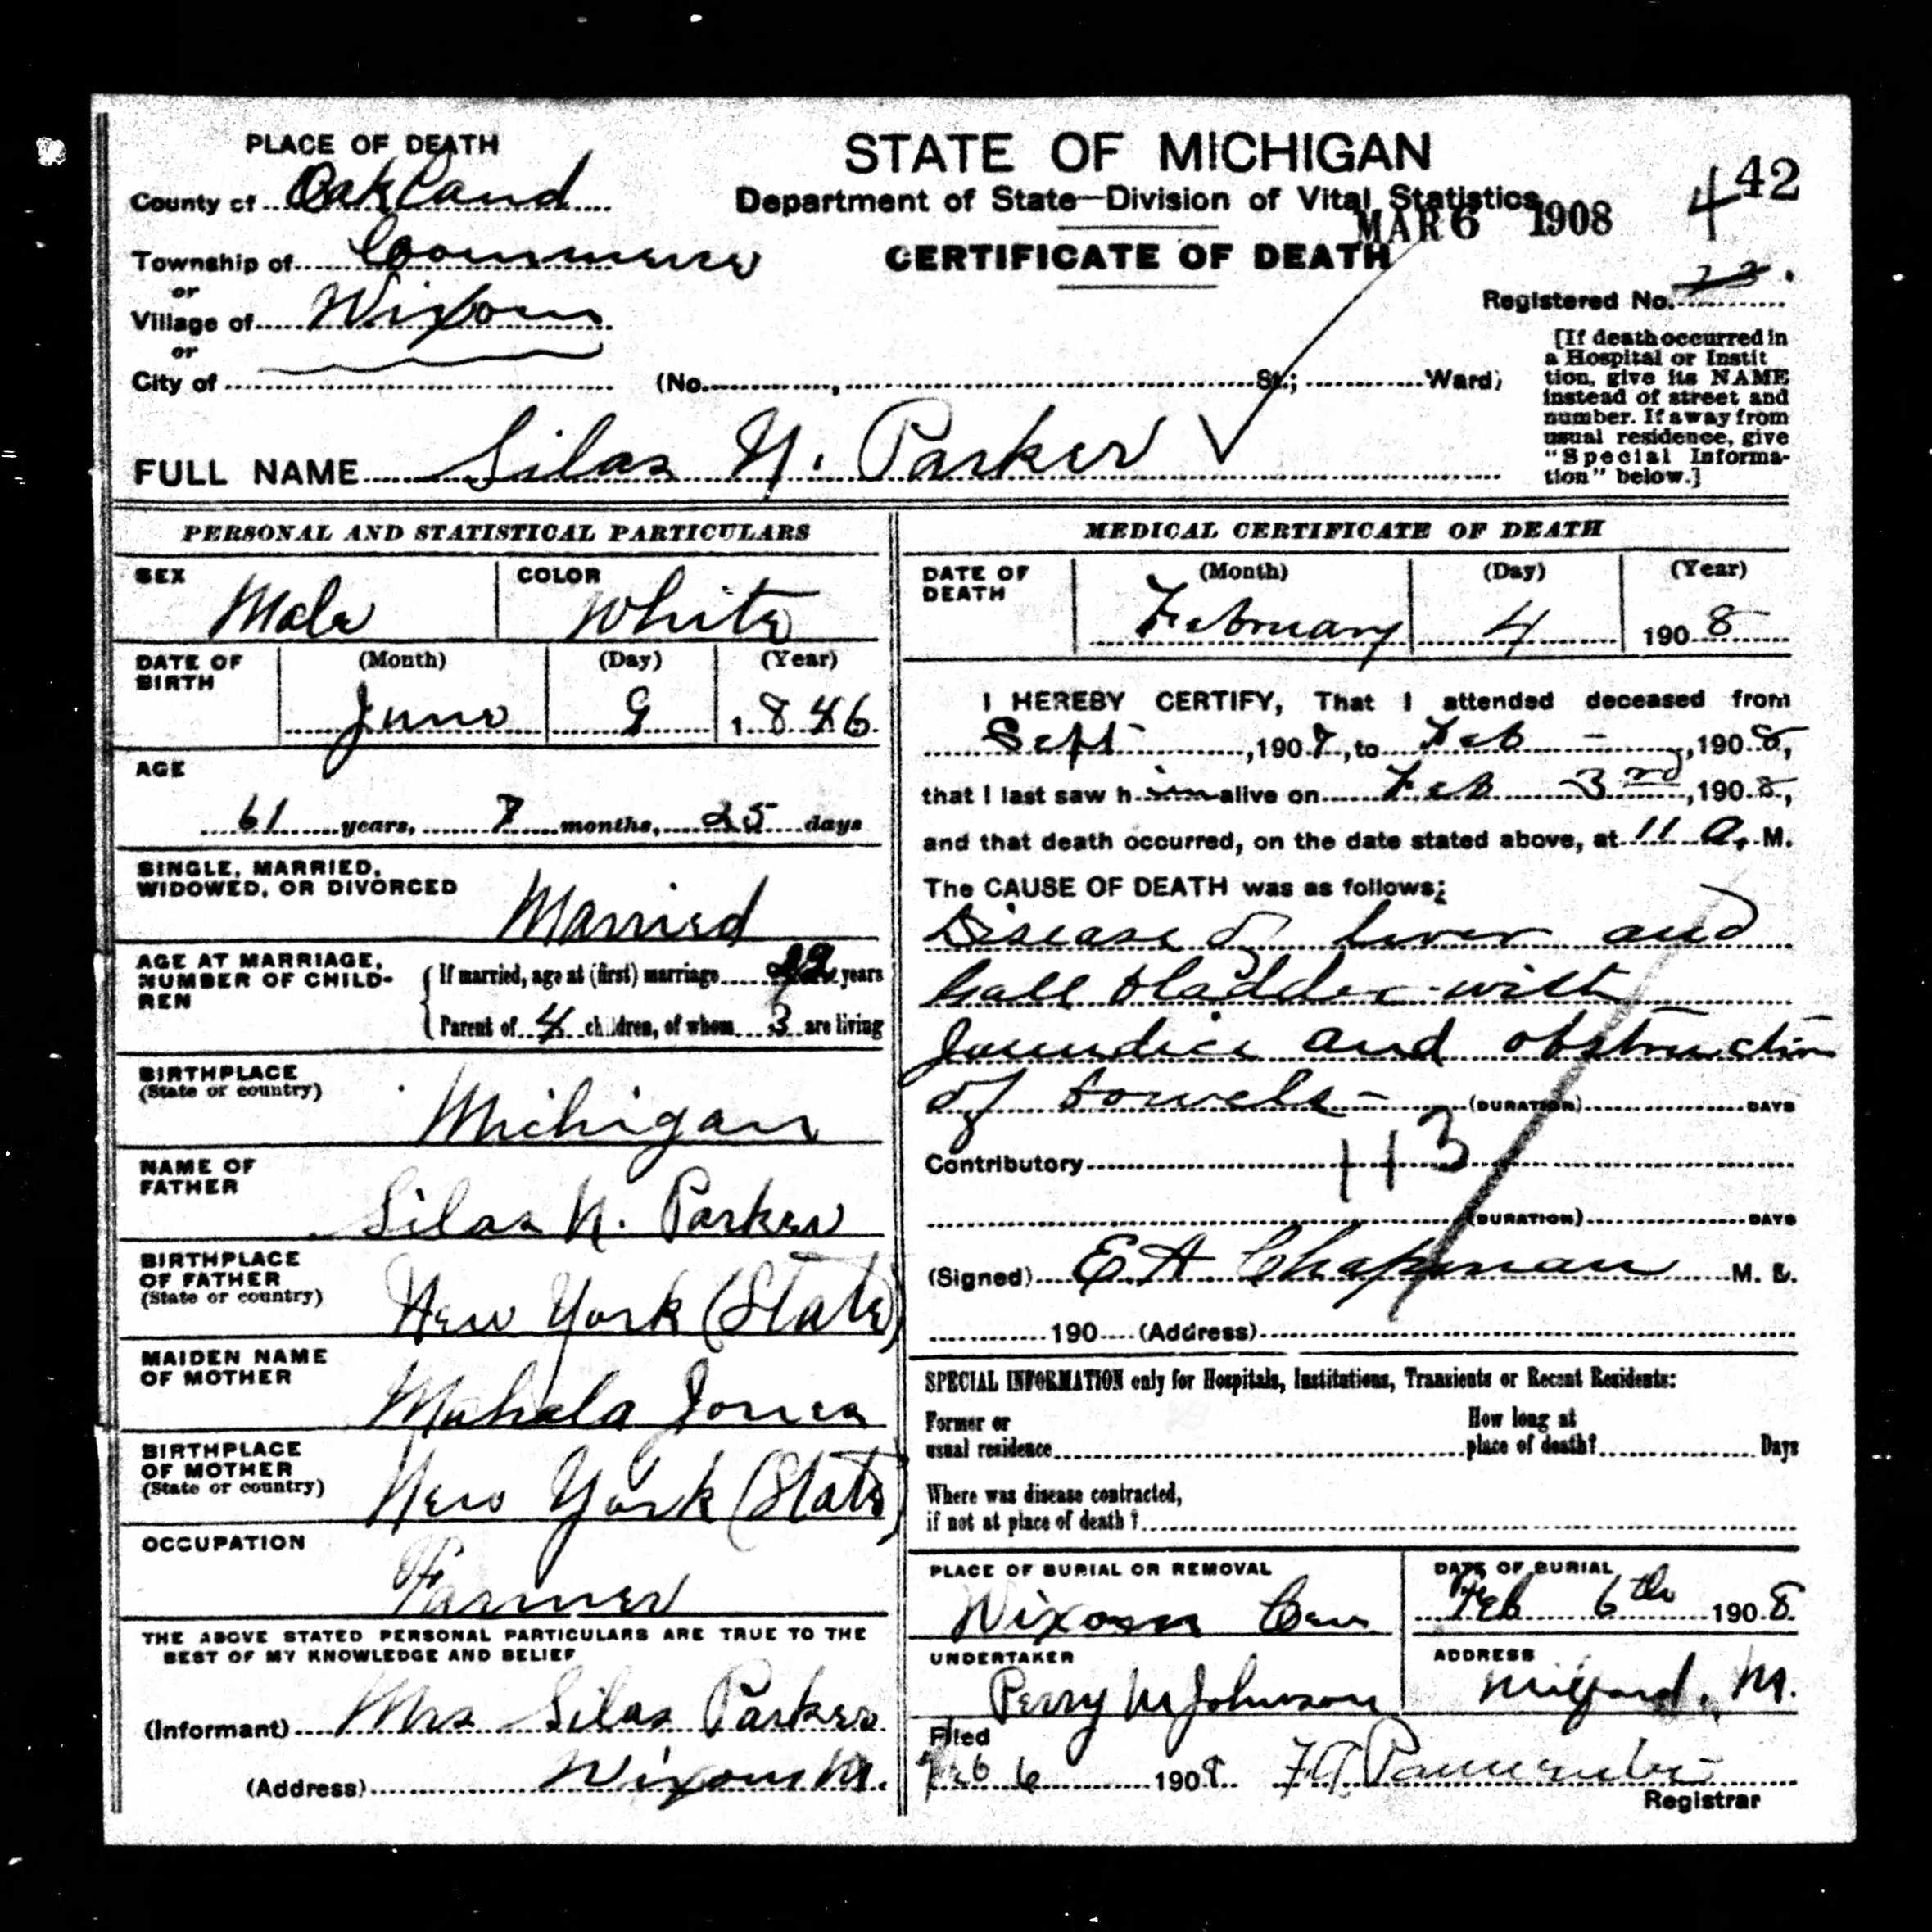 PLACE OF DEATH
County of Oakland
Township of Commerce
or
Village of Wixom
or
City of
STATE OF MICHIGAN
Department of State—Division of Vital Statistics
MAR 6 1908
CERTIFICATE OF DEATH
4 42
Registered No.
(No. , St.; Ward)
[If death occurred in
a Hospital or Instit
tion, give its NAME
instead of street and
number. If away from
usual residence, give
"Special Informa-
tion" below.]
FULL NAME Silas N. Parker
PERSONAL AND STATISTICAL PARTICULARS
SEX Male
COLOR White
DATE OF BIRTH
(Month) (Day) (Year)
June 9 1846
AGE
61 years, 7 months, 25 days
SINGLE, MARRIED,
WIDOWED, OR DIVORCED
Married
AGE AT MARRIAGE,
NUMBER OF CHILD-
REN
If married, age at (first) marriage years
Parent of 4 children, of whom 3 are living
BIRTHPLACE
(State or country)
Michigan
NAME OF
FATHER
Silas N. Parker
BIRTHPLACE
OF FATHER
(State or country)
New York (State)
MAIDEN NAME
OF MOTHER
Mahala Jones
BIRTHPLACE
OF MOTHER
(State or country)
New York (State)
OCCUPATION
Farmer
THE ABOVE STATED PERSONAL PARTICULARS ARE TRUE TO THE
BEST OF MY KNOWLEDGE AND BELIEF
(Informant) Mrs Silas Parker
(Address) Wixom M.
MEDICAL CERTIFICATE OF DEATH
DATE OF
DEATH
(Month) (Day) (Year)
February 4 1908
I HEREBY CERTIFY, That I attended deceased from
Sept , 1907, to Feb - , 1908,
that I last saw him alive on Feb 3rd, 1908,
and that death occurred, on the date stated above, at 11 a. M.
The CAUSE OF DEATH was as follows:
Disease of liver and
Gall bladder with
Jaundice and obstruction
of bowels - (DURATION) DAYS
Contributory 113
(DURATION) DAYS
(Signed) E A Chapman M. D.
190 (Address)
SPECIAL INFORMATION only for Hospitals, Institutions, Transients or Recent Residents:
Former or
usual residence
How long at
place of death? Days
Where was disease contracted,
if not at place of death?
PLACE OF BURIAL OR REMOVAL
Wixom Cem
DATE OF BURIAL
Feb 6th 1908
UNDERTAKER
Perry M Johnson
ADDRESS
Milford, M.
Filed
Feb 6 1908
Registrar